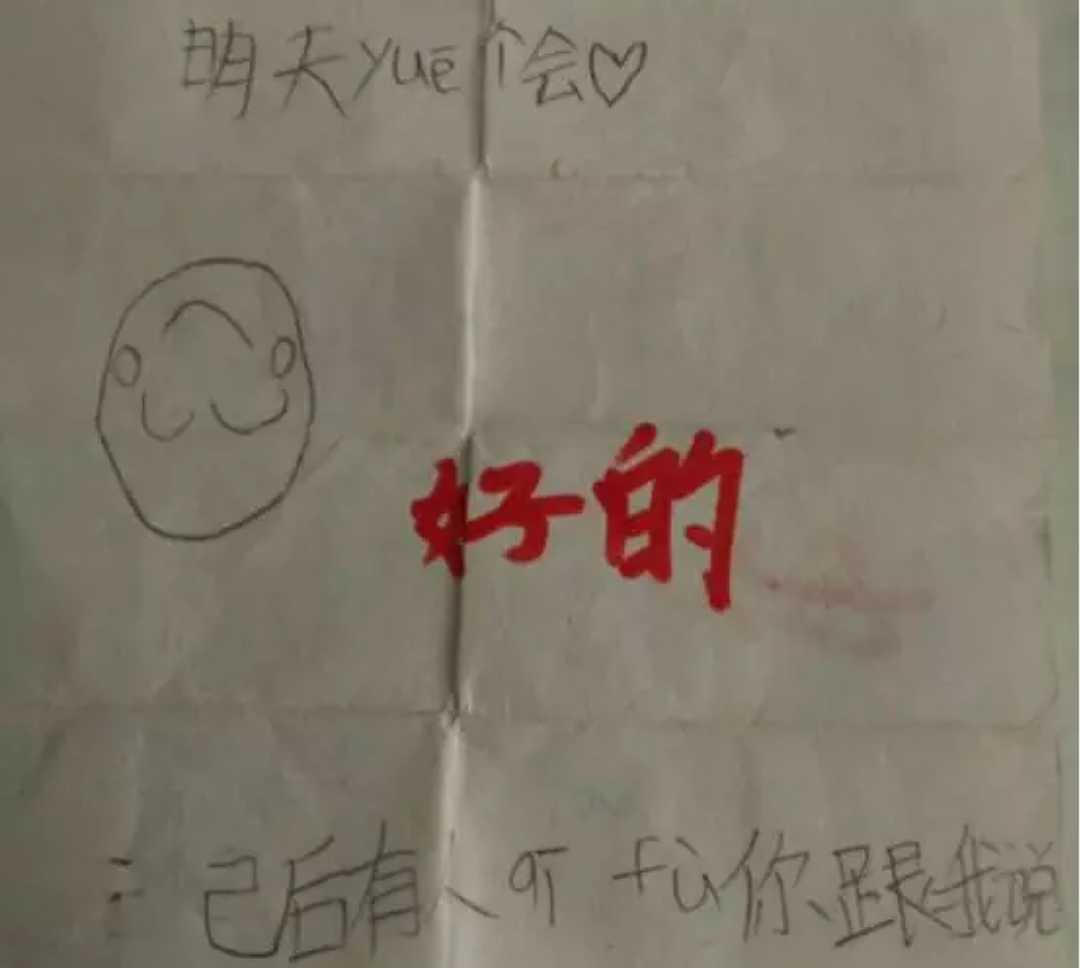 明天yuē个会♡
好的
己后有人qī fù你跟我说